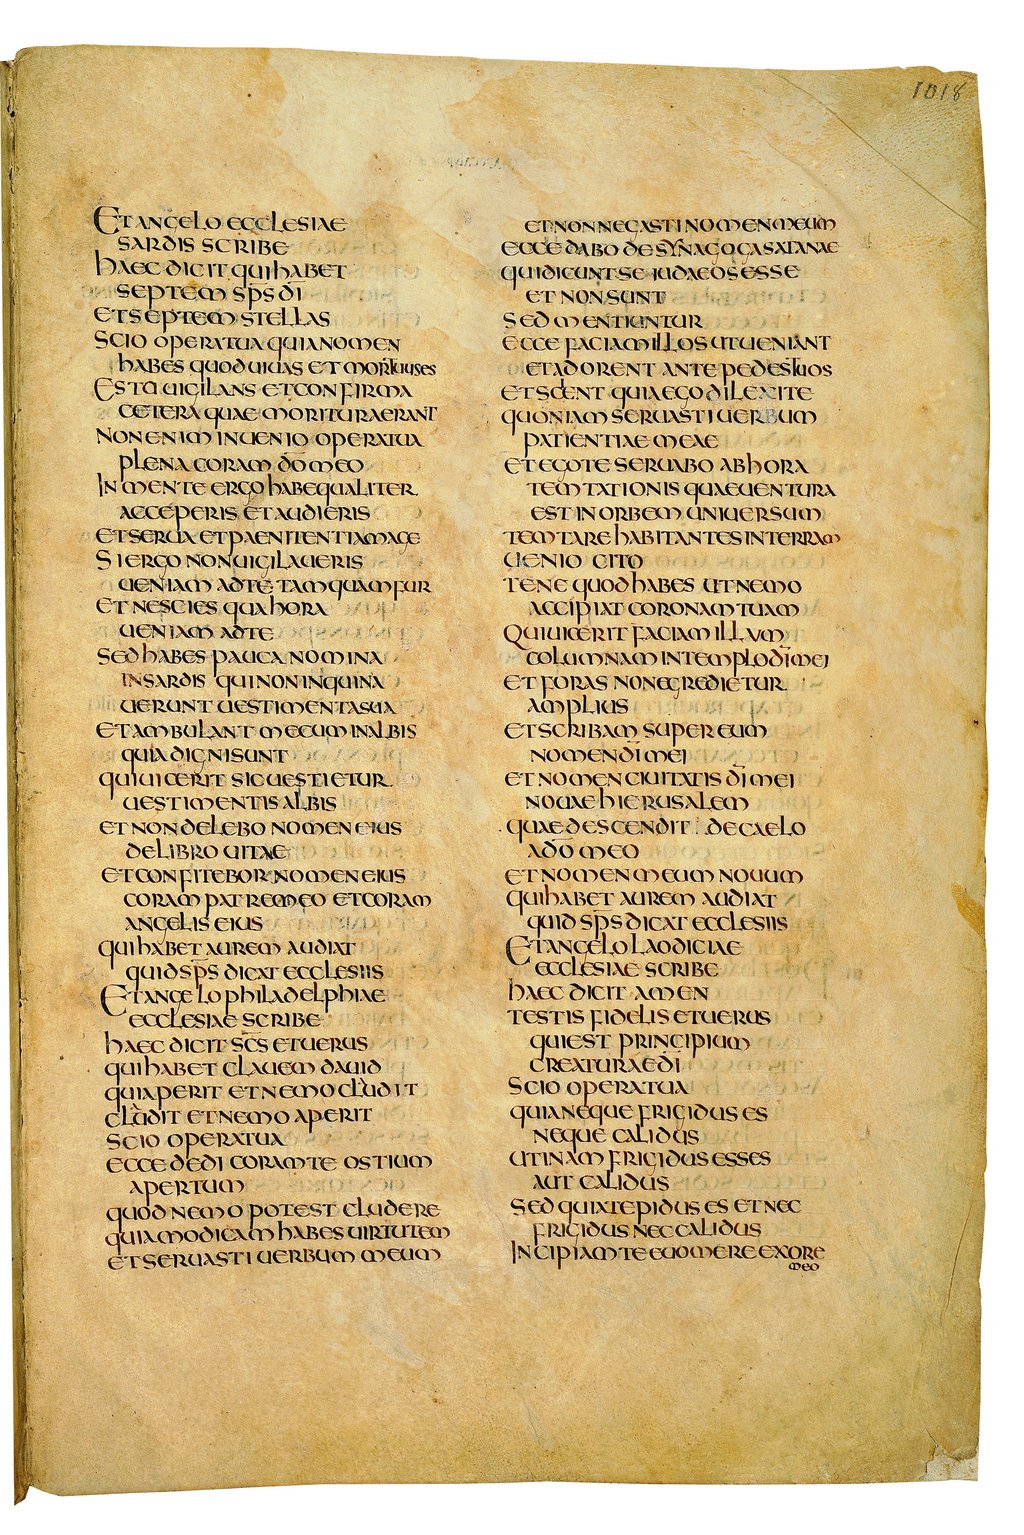 1018
Et angelo ecclesiae
sardis scribe
haec dicit qui habet
septem sp̄s dī
et septem stellas
scio opera tua quia nomen
habes quod uiuas et mortuus es
Esto uigilans et confirma
cetera quae moritura erant
Non enim inuenio opera tua
plena coram dō meo
In mente ergo habe qualiter
acceperis et audieris
et serua et paenitentiam age
Si ergo non uigilaueris
ueniam ad te tamquam fur
et nescies qua hora
ueniam ad te
Sed habes pauca nomina
in sardis qui non inquina
uerunt uestimenta sua
et ambulant mecum in albis
quia digni sunt
qui uicerit sic uestietur
uestimentis albis
et non delebo nomen eius
de libro uitae
et confitebor nomen eius
coram patre meo et coram
angelis eius
qui habet aurem audiat
quid sp̄s dicat ecclesiis
Et angelo philadelphiae
ecclesiae scribe
haec dicit sc̄s et uerus
qui habet clauem dauid
qui aperit et nemo cludit
cludit et nemo aperit
scio opera tua
ecce dedi coram te ostium
apertum
quod nemo potest cludere
quia modicam habes uirtutem
et seruasti uerbum meum
et non negasti nomen meum
ecce dabo de synagoga satanae
qui dicunt se iudaeos esse
et non sunt
sed mentiuntur
ecce faciam illos ut ueniant
et adorent ante pedes tuos
et scient quia ego dilexi te
quoniam seruasti uerbum
patientiae meae
et ego te seruabo ab hora
temtationis quae uentura
est in orbem uniuersum
temtare habitantes in terram
uenio cito
tene quod habes ut nemo
accipiat coronam tuam
Qui uicerit faciam illum
columnam in templo dī mei
et foras non egredietur
amplius
et scribam super eum
nomen dī mei
et nomen ciuitatis dī mei
nouae hierusalem
quae descendit de caelo
a dō meo
et nomen meum nouum
qui habet aurem audiat
quid sp̄s dicat ecclesiis
Et angelo laodiciae
ecclesiae scribe
haec dicit amen
testis fidelis et uerus
qui est principium
creaturae dī
Scio opera tua
quia neque frigidus es
neque calidus
utinam frigidus esses
aut calidus
Sed quia tepidus es et nec
frigidus nec calidus
Incipiam te euomere ex ore
meo